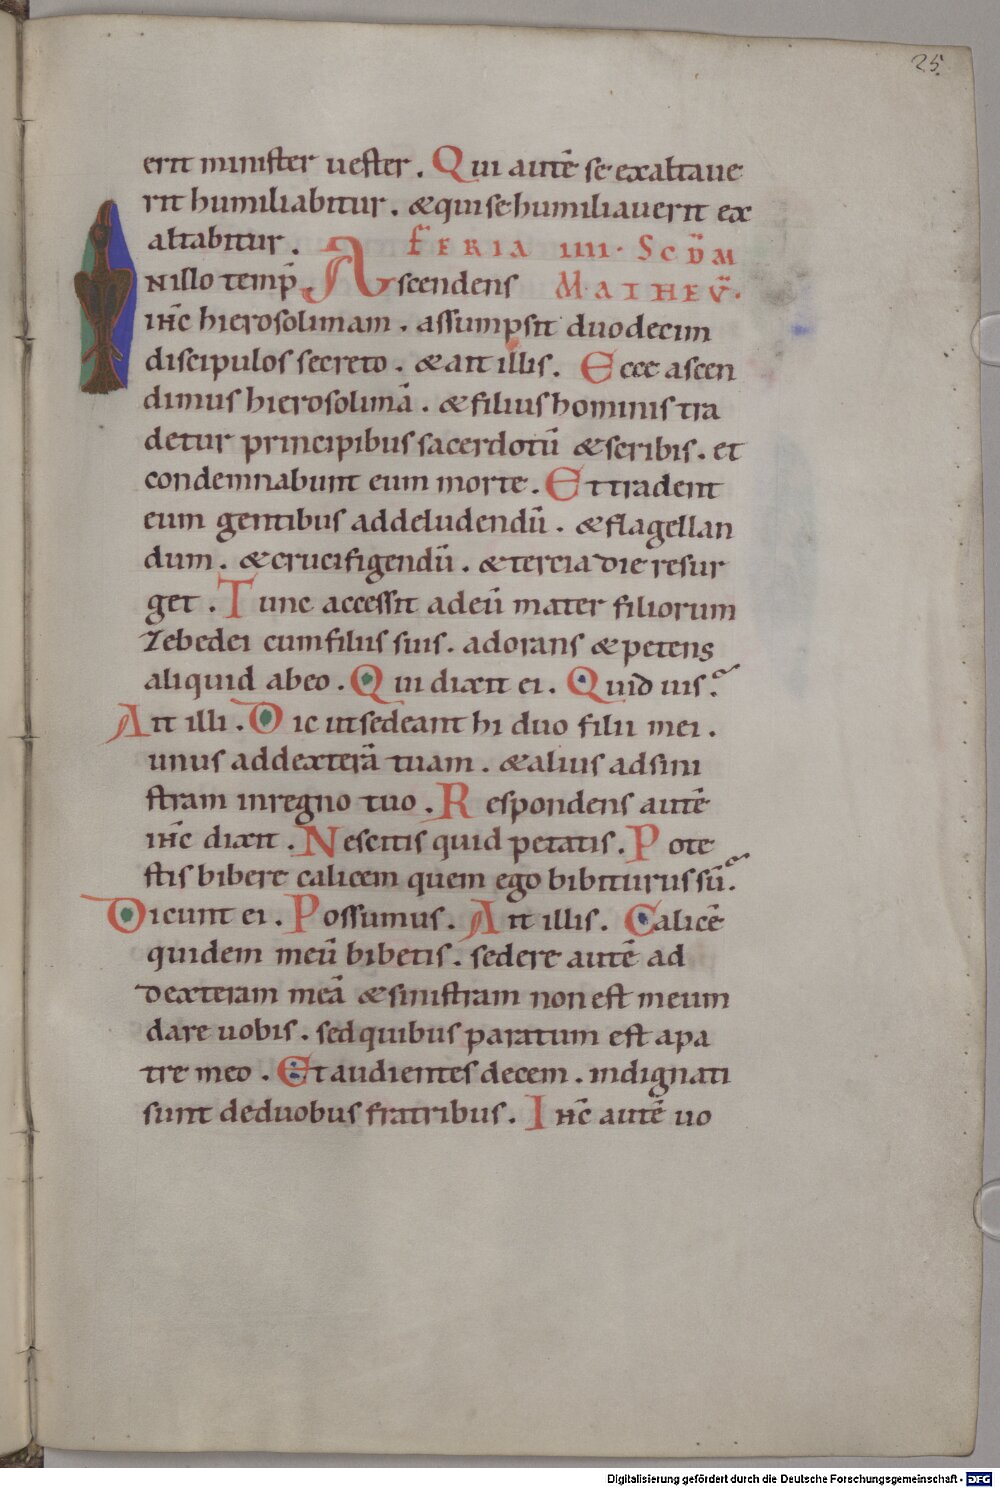 25.
erit minister uester. Qui autē se exaltaue
rit humiliabitur. & qui se humiliauerit ex
altabitur. FERIA IIII. SCDM
IN illo temp̄. Ascendens MATHEV̄.
ihc̄ hierosolimam. assumpsit duodecim
discipulos secreto. & ait illis. Ecce ascen
dimus hierosolimā. & filius hominis tra
detur principibus sacerdotū & scribis. et
condemnabunt eum morte. Et tradent
eum gentibus ad deludendū. & flagellan
dum. & crucifigendū. & tercia die resur
get. Tunc accessit ad eū mater filiorum
Zebedei cum filiis suis. adorans & petens
aliquid ab eo. Qui dixit ei. Quid uis?
Ait illi. Dic ut sedeant hi duo filii mei.
unus ad dexterā tuam. & alius ad sini
stram in regno tuo. Respondens autē
ihc̄ dixit. Nescitis quid petatis. Pote
stis bibere calicem quem ego bibiturus sū?
Dicunt ei. Possumus. Ait illis. Calicē
quidem meū bibetis. sedere autē ad
dexteram meā & sinistram non est meum
dare uobis. sed quibus paratum est a pa
tre meo. Et audientes decem. indignati
sunt de duobus fratribus. Ihc̄ autē uo
Digitalisierung gefördert durch die Deutsche Forschungsgemeinschaft - DFG